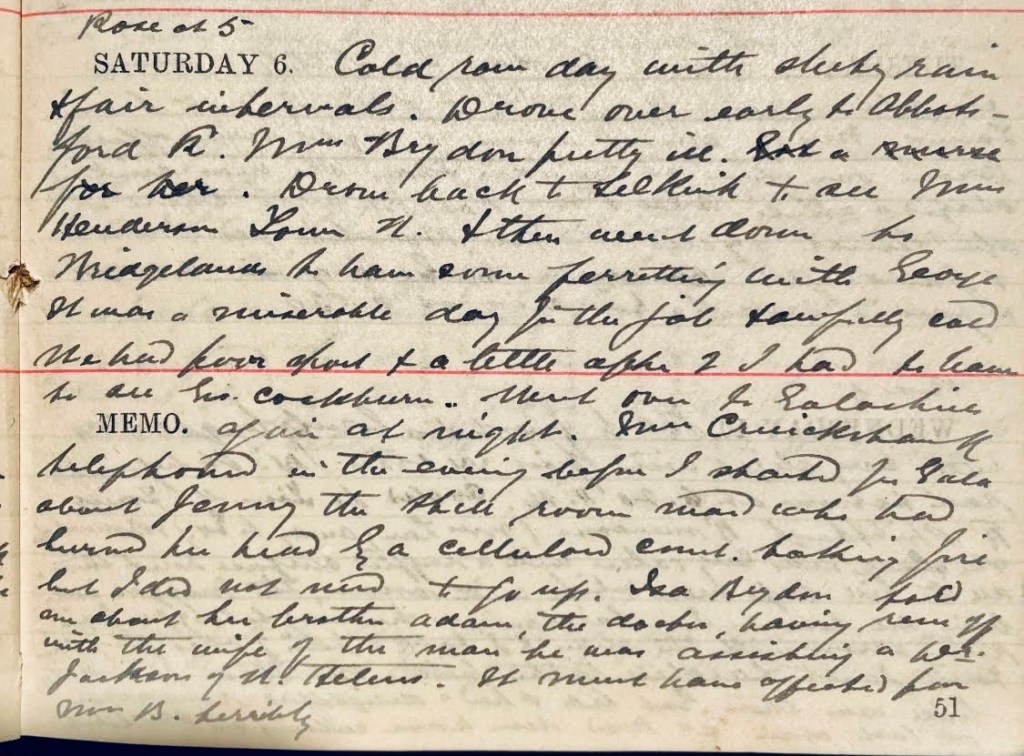 Rose at 5
SATURDAY 6. Cold raw day with sleety rain
& fair intervals. Drove over early to Abbots-
ford Fm. Mrs Brydon pretty ill. Got a nurse
for her. Drove back to Selkirk to see Mrs
Henderson Town H. & then went down to
Bridgelands to have some ferretting with George
It was a miserable day for the job & awfully cold
We had poor sport & a little after 2 I had to leave
to see Geo. Cockburn. Went over to Galashiels
MEMO. again at night. Mrs Cruickshank
telephoned in the evening before I started for Gala
about Jenny the still room maid who had
burned her head by a celluloid comb taking fire
but I did not need to go up. Isa Brydon told
me about her brother Adam, the doctor, having run off
with the wife of the man he was assisting a Dr.
Jackson of St. Helens. It must have affected poor
Mrs B. terribly
51